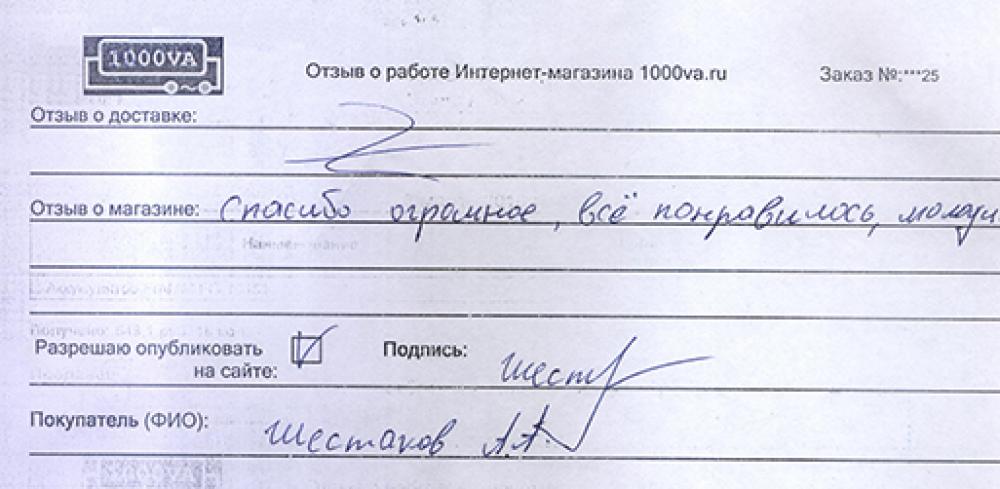 1000VA
Отзыв о работе Интернет-магазина 1000va.ru
Заказ №:***25
Отзыв о доставке:
Отзыв о магазине: Спасибо огромное, всё понравилось, молодц
Наименование
Разрешаю опубликовать
на сайте:
Подпись: Шест
Покупатель (ФИО): Шестаков А.А.